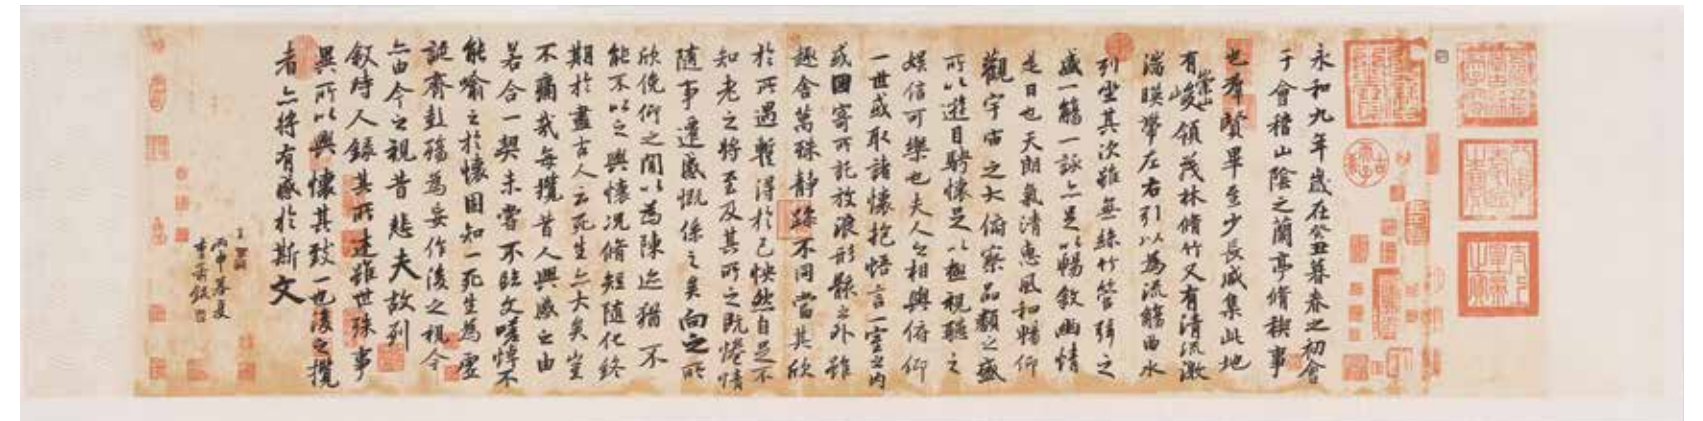 永和九年歲在癸丑暮春之初會
于會稽山陰之蘭亭脩禊事
也羣賢畢至少長咸集此地
有崇山峻領茂林脩竹又有清流激
湍暎帶左右引以為流觴曲水
列坐其次雖無絲竹管弦之
盛一觴一詠亦足以暢敘幽情
是日也天朗氣清惠風和暢仰
觀宇宙之大俯察品類之盛
所以遊目騁懷足以極視聽之
娛信可樂也夫人之相與俯仰
一世或取諸懷抱悟言一室之內
或因寄所託放浪形骸之外雖
趣舍萬殊靜躁不同當其欣
於所遇暫得於己怏然自足不
知老之將至及其所之既惓情
隨事遷感慨係之矣向之所
欣俛仰之間以為陳迹猶不
能不以之興懷況脩短隨化終
期於盡古人云死生亦大矣豈
不痛哉每攬昔人興感之由
若合一契未嘗不臨文嗟悼不
能喻之於懷固知一死生為虛
誕齊彭殤為妄作後之視今
亦由今之視昔悲夫故列
敘時人錄其所述雖世殊事
異所以興懷其致一也後之攬
者亦將有感於斯文
丙申暮夏